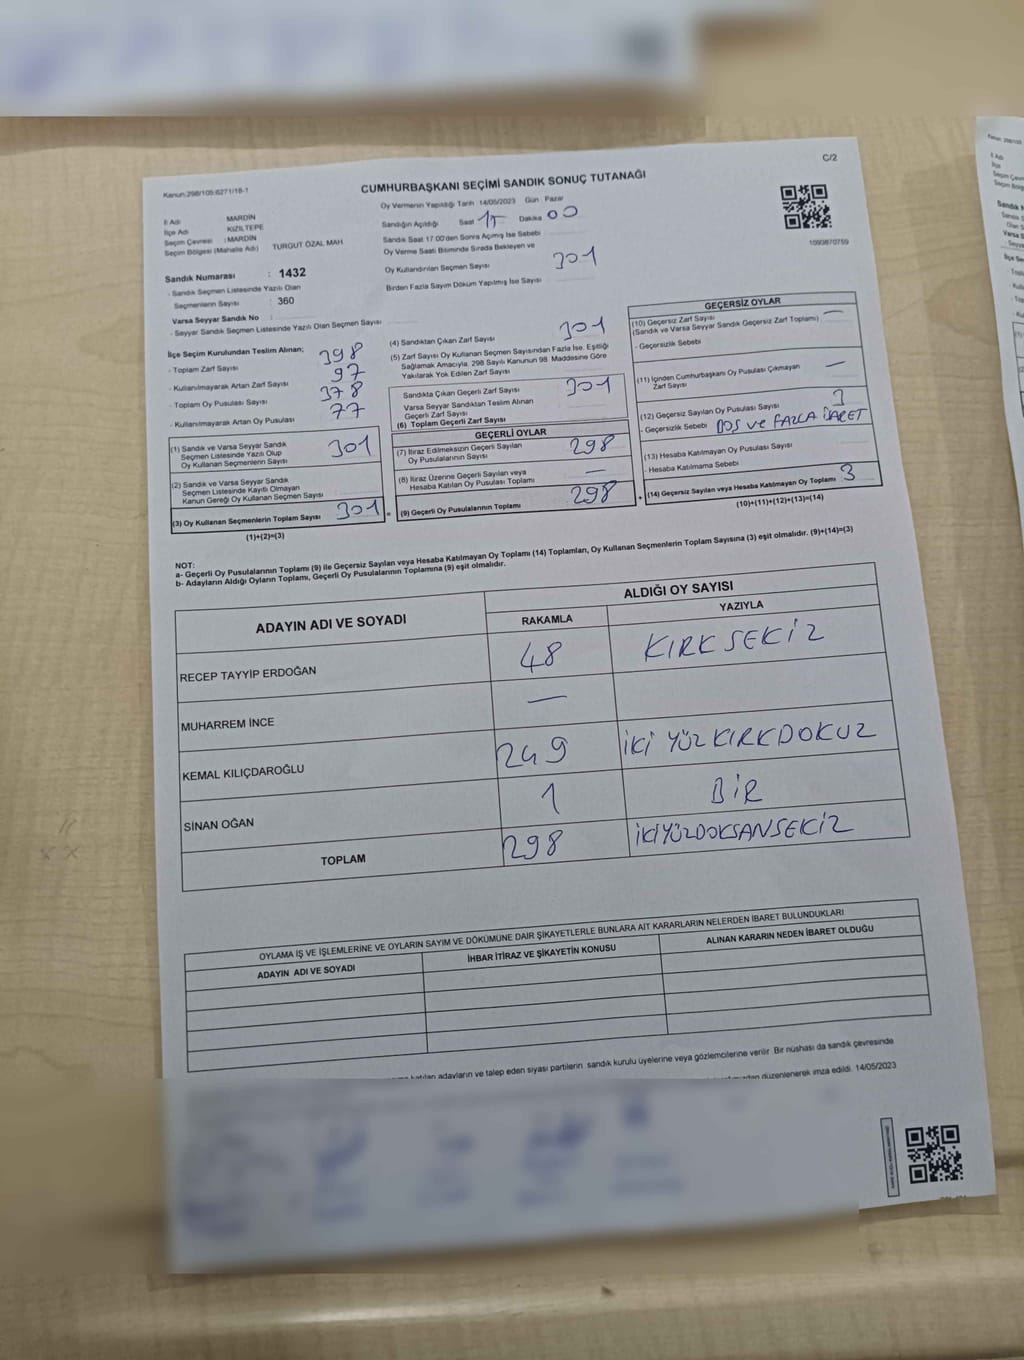 C/2
Kanun:298/105;6271/18-1
CUMHURBAŞKANI SEÇİMİ SANDIK SONUÇ TUTANAĞI
Oy Vermenin Yapıldığı Tarih 14/05/2023 Gün Pazar
İl Adı MARDİN
İlçe Adı KIZILTEPE
Seçim Çevresi : MARDİN
Seçim Bölgesi (Mahalle Adı) TURGUT ÖZAL MAH.
Sandığın Açıldığı Saat 17 Dakika 00
Sandık Saat 17.00'den Sonra Açılmış İse Sebebi
Oy Verme Saati Bitiminde Sırada Bekleyen ve
Oy Kullandırılan Seçmen Sayısı 301
Birden Fazla Sayım Döküm Yapılmış İse Sayısı
1090870759
Sandık Numarası : 1432
- Sandık Seçmen Listesinde Yazılı Olan
Seçmenlerin Sayısı : 360
Varsa Seyyar Sandık No :
- Seyyar Sandık Seçmen Listesinde Yazılı Olan Seçmen Sayısı
İlçe Seçim Kurulundan Teslim Alınan;
- Toplam Zarf Sayısı 398
- Kullanılmayarak Artan Zarf Sayısı 97
- Toplam Oy Pusulası Sayısı 378
- Kullanılmayarak Artan Oy Pusulası 77
(1) Sandık ve Varsa Seyyar Sandık
Seçmen Listesinde Yazılı Olup
Oy Kullanan Seçmenlerin Sayısı 301
(2) Sandık ve Varsa Seyyar Sandık
Seçmen Listesinde Kayıtlı Olmayan
Kanun Gereği Oy Kullanan Seçmen Sayısı
(3) Oy Kullanan Seçmenlerin Toplam Sayısı 301
(1)+(2)=(3)
(4) Sandıktan Çıkan Zarf Sayısı 301
(5) Zarf Sayısı Oy Kullanan Seçmen Sayısından Fazla İse, Eşitliği
Sağlamak Amacıyla, 298 Sayılı Kanunun 98. Maddesine Göre
Yakılarak Yok Edilen Zarf Sayısı
Sandıkta Çıkan Geçerli Zarf Sayısı 301
Varsa Seyyar Sandıktan Teslim Alınan
Geçerli Zarf Sayısı
(6) Toplam Geçerli Zarf Sayısı
GEÇERLİ OYLAR
(7) İtiraz Edilmeksizin Geçerli Sayılan
Oy Pusulalarının Sayısı 298
(8) İtiraz Üzerine Geçerli Sayılan veya
Hesaba Katılan Oy Pusulası Toplamı —
(9) Geçerli Oy Pusulalarının Toplamı 298
GEÇERSİZ OYLAR
(10) Geçersiz Zarf Sayısı
(Sandık ve Varsa Seyyar Sandık Geçersiz Zarf Toplamı) —
- Geçersizlik Sebebi
(11) İçinden Cumhurbaşkanı Oy Pusulası Çıkmayan
Zarf Sayısı —
(12) Geçersiz Sayılan Oy Pusulası Sayısı 3
- Geçersizlik Sebebi BOŞ ve FAZLA İŞARET
(13) Hesaba Katılmayan Oy Pusulası Sayısı
- Hesaba Katılmama Sebebi
(14) Geçersiz Sayılan veya Hesaba Katılmayan Oy Toplamı 3
(10)+(11)+(12)+(13)=(14)
NOT:
a- Geçerli Oy Pusulalarının Toplamı (9) ile Geçersiz Sayılan veya Hesaba Katılmayan Oy Toplamı (14) Toplamları, Oy Kullanan Seçmenlerin Toplam Sayısına (3) eşit olmalıdır. (9)+(14)=(3)
b- Adayların Aldığı Oyların Toplamı, Geçerli Oy Pusulalarının Toplamına (9) eşit olmalıdır.
ADAYIN ADI VE SOYADI
ALDIĞI OY SAYISI
RAKAMLA YAZIYLA
RECEP TAYYİP ERDOĞAN 48 KIRKSEKİZ
MUHARREM İNCE —
KEMAL KILIÇDAROĞLU 249 İKİ YÜZ KIRKDOKUZ
SİNAN OĞAN 1 BİR
TOPLAM 298 İKİYÜZDOKSANSEKİZ
OYLAMA İŞ VE İŞLEMLERİNE VE OYLARIN SAYIM VE DÖKÜMÜNE DAİR ŞİKAYETLERLE BUNLARA AİT KARARLARIN NELERDEN İBARET BULUNDUKLARI
ADAYIN ADI VE SOYADI İHBAR İTİRAZ VE ŞİKAYETİN KONUSU ALINAN KARARIN NEDEN İBARET OLDUĞU
katılan adayların ve talep eden siyasi partilerin sandık kurulu üyelerine veya gözlemcilerine verilir. Bir nüshası da sandık çevresinde
düzenlenerek imza edildi. 14/05/2023